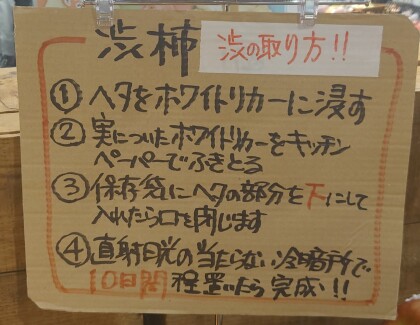 渋柿 渋の取り方!!
① ヘタをホワイトリカーに浸す
② 実についたホワイトリカーをキッチン
ペーパーでふきとる
③ 保存袋にヘタの部分を下にして
入れたら口を閉じます
④ 直射日光の当たらない冷暗所で
10日間程置いたら完成!!